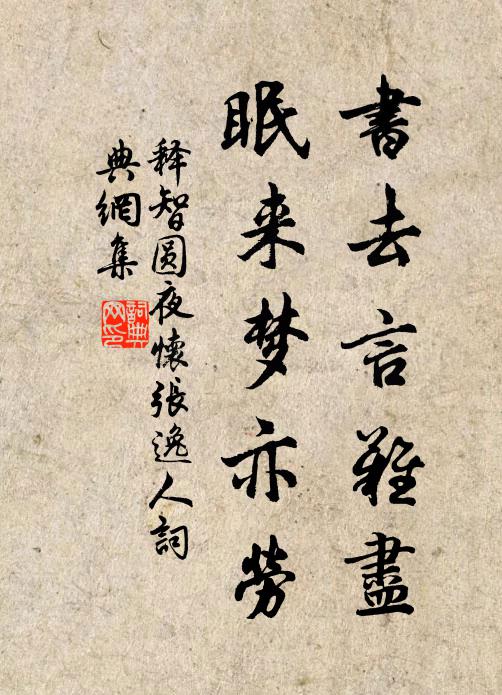 書去言難盡
眠来梦亦勞
释智圆夜懷張逸人詞
典網集
詞典
网印